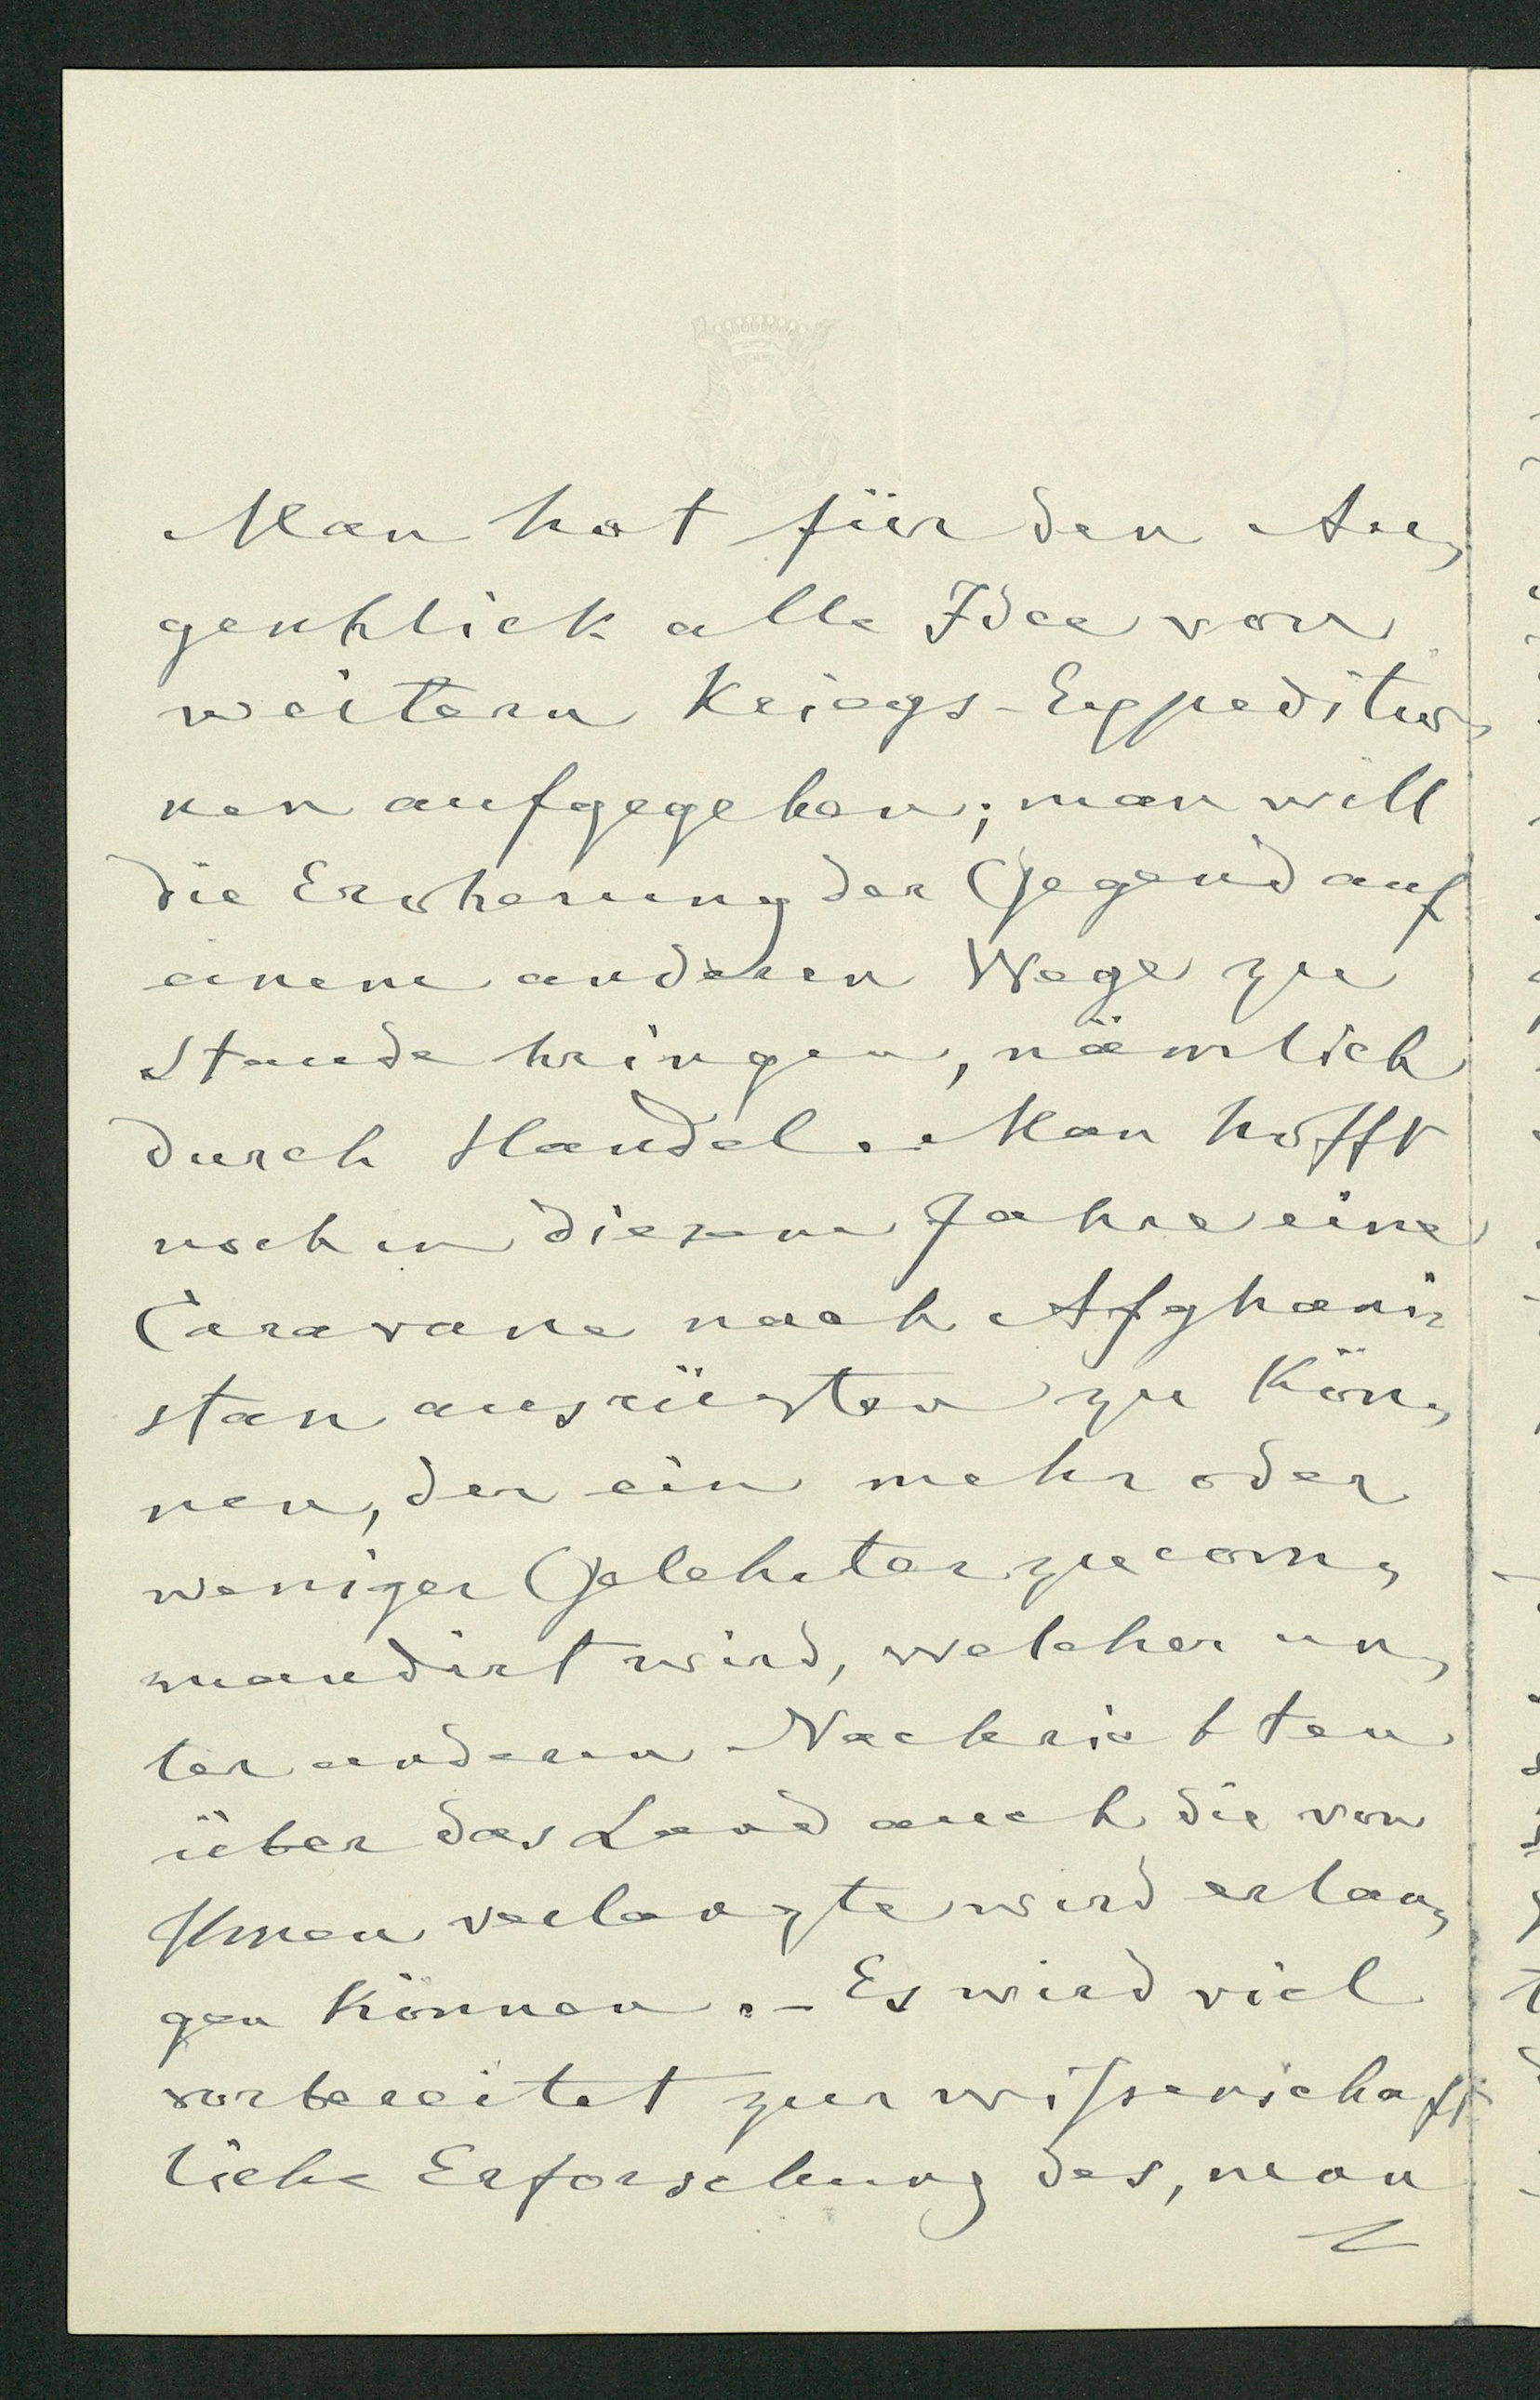 Man hat für den Au-
genblick alle Idee von
weitern Kriegs-Expeditio-
nen aufgegeben; man will
die Eroberung der Gegend auf
einem anderen Wege zu
Stande bringen, nämlich
durch Handel. Man hofft
noch in diesem Jahre eine
Caravane nach Afghanis
stan ausrüsten zu kön-
nen, der ein mehr oder
weniger Gelehrter zucom-
mandirt wird, welcher un-
ter anderen Nachrichten
über das Land auch die von
Ihnen verlangte wird erlan-
gen können. – Es wird viel
vorbereitet zur wissenschaft
liche Erforschung des, man